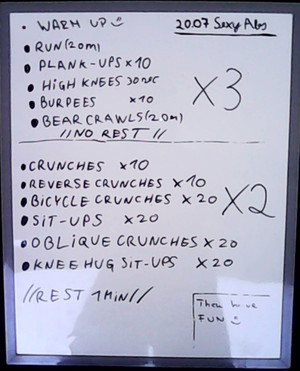 • WARM UP ☺
20.07 Sexy Abs
• RUN (20m)
• PLANK-UPS x10
• HIGH KNEES 30 sec
• BURPEES x10
• BEAR CRAWLS (20m)
x3
//NO REST//
• CRUNCHES x10
• REVERSE CRUNCHES x10
• BICYCLE CRUNCHES x20
• SIT-UPS x20
• OBLIQUE CRUNCHES x20
• KNEE HUG SIT-UPS x20
x2
//REST 1MIN//
FUN ☺